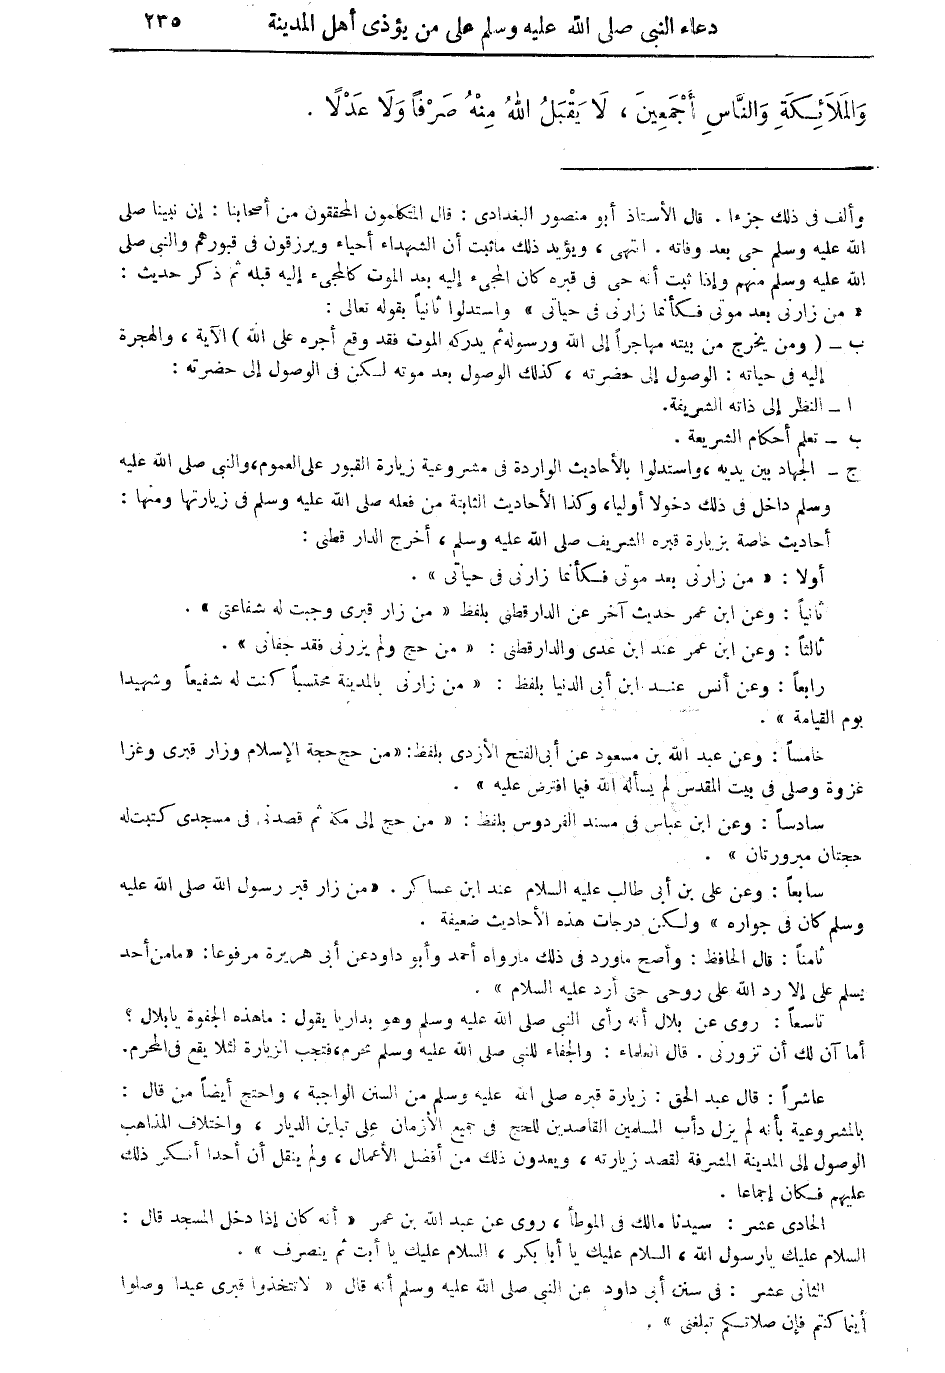 دعاء النبى صلى الله عليه وسلم على من يؤذى أهل المدينة ٢٣٥
وَالمَلَائِكَةِ وَالنَّاسِ أَجْمَعِينَ ، لَا يَقْبَلُ اللهُ مِنْهُ صَرْفاً وَلَا عَدْلًا .
وألف فى ذلك جزءا . قال الأستاذ أبو منصور البغدادى : قال المتكلمون المحققون من أصحابنا : إن نبينا صلى
الله عليه وسلم حى بعد وفاته . انتهى ، ويؤيد ذلك ماثبت أن الشهداء أحياء ويرزقون فى قبورهم والنبى صلى
الله عليه وسلم منهم وإذا ثبت أنه حى فى قبره كان المجىء إليه بعد الموت كالمجىء إليه قبله ثم ذكر حديث :
« من زارنى بعد موتى فكأنما زارنى فى حياتى » واستدلوا ثانياً بقوله تعالى :
ب ــ ( ومن يخرج من بيته مهاجراً إلى الله ورسوله ثم يدركه الموت فقد وقع أجره على الله ) الآية ، والهجرة
إليه فى حياته : الوصول إلى حضرته ، كذلك الوصول بعد موته لكن فى الوصول إلى حضرته :
ا ــ النظر إلى ذاته الشريفة.
ب ــ تعلم أحكام الشريعة .
ج ــ الجهاد بين يديه ،واستدلوا بالأحاديث الواردة فى مشروعية زيارة القبور على العموم،والنبى صلى الله عليه
وسلم داخل فى ذلك دخولا أوليا، وكذا الأحاديث الثابتة من فعله صلى الله عليه وسلم فى زيارتها ومنها :
أحاديث خاصة بزيارة قبره الشريف صلى الله عليه وسلم ، أخرج الدار قطنى :
أولا : « من زارنى بعد موتى فكأنما زارنى فى حياتى » .
ثانياً : وعن ابن عمر حديث آخر عن الدارقطنى بلفظ « من زار قبرى وجبت له شفاعتى » .
ثالثاً : وعن ابن عمر عند ابن عدى والدارقطنى : « من حج ولم يزرنى فقد جفانى » .
رابعاً : وعن أنس عند ابن أبى الدنيا بلفظ : « من زارنى بالمدينة محتسباً كنت له شفيعاً وشهيدا
يوم القيامة » .
خامساً : وعن عبد الله بن مسعود عن أبى الفتح الأزدى بلفظ: «من حج حجة الإسلام وزار قبرى وغزا
غزوة وصلى فى بيت المقدس لم يسأله الله فيما افترض عليه » .
سادساً : وعن ابن عباس فى مسند الفردوس بلفظ : « من حج إلى مكة ثم قصدنى فى مسجدى كتبت له
حجتان مبرورتان » .
سابعاً : وعن على بن أبى طالب عليه السلام عند ابن عساكر . «من زار قبر رسول الله صلى الله عليه
وسلم كان فى جواره » ولكن درجات هذه الأحاديث ضعيفة .
ثامناً : قال الحافظ : وأصح ماورد فى ذلك مارواه أحمد وأبو داود عن أبى هريرة مرفوعا: «مامن أحد
يسلم على إلا رد الله على روحى حتى أرد عليه السلام » .
تاسعاً : روى عن بلال أنه رأى النبى صلى الله عليه وسلم وهو بداريا يقول : ماهذه الجفوة يابلال ؟
أما آن لك أن تزورنى . قال العلماء : والجفاء للنبى صلى الله عليه وسلم محرم،فتجب الزيارة لئلا يقع فى المحرم.
عاشراً : قال عبد الحق : زيارة قبره صلى الله عليه وسلم من السنن الواجبة ، واحتج أيضاً من قال :
بالمشروعية بأنه لم يزل دأب المسلمين القاصدين للحج فى جميع الأزمان على تباين الديار ، واختلاف المذاهب
الوصول إلى المدينة المشرفة لقصد زيارته ، ويعدون ذلك من أفضل الأعمال ، ولم ينقل أن أحدا أنكر ذلك
عليهم فكان إجماعا .
الحادى عشر : سيدنا مالك فى الموطأ ، روى عن عبد الله بن عمر « أنه كان إذا دخل المسجد قال :
السلام عليك يارسول الله ، السلام عليك يا أبا بكر ، السلام عليك يا أبت ثم ينصرف » .
الثانى عشر : فى سنن أبى داود عن النبى صلى الله عليه وسلم أنه قال « لاتتخذوا قبرى عيدا وصلوا
أينما كنتم فإن صلاتكم تبلغنى » .